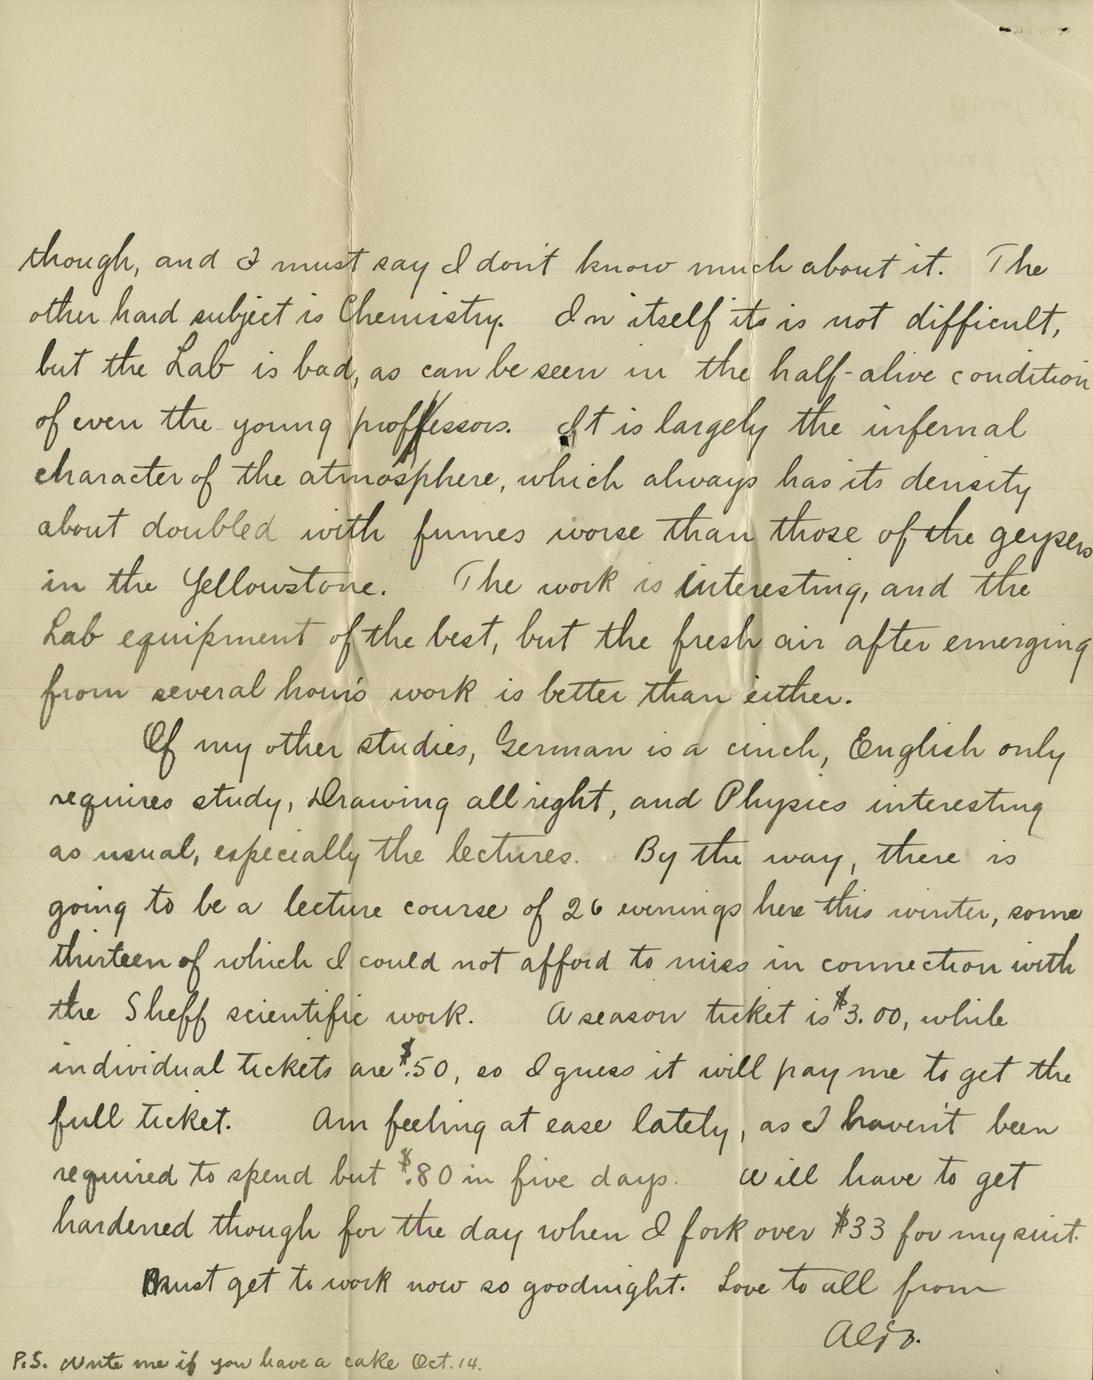 though, and I must say I don't know much about it. The
other hard subject is Chemistry. In itself its is not difficult,
but the Lab is bad, as can be seen in the half-alive condition
of even the young proffessors. It is largely the infernal
character of the atmosphere, which always has its density
about doubled with fumes worse than those of the geysers
in the Yellowstone. The work is interesting, and the
Lab equipment of the best, but the fresh air after emerging
from several hours work is better than either.
Of my other studies, German is a cinch, English only
requires study, Drawing all right, and Physics interesting
as usual, especially the lectures. By the way, there is
going to be a lecture course of 26 evenings here this winter, some
thirteen of which I could not afford to miss in connection with
the Sheff scientific work. A season ticket is $3.00, while
individual tickets are $.50, so I guess it will pay me to get the
full ticket. Am feeling at ease lately, as I haven't been
required to spend but $.80 in five days. Will have to get
hardened though for the day when I fork over $33 for my suit.
Must get to work now so goodnight. Love to all from
P.S. Write me if you have a cake Oct. 14.